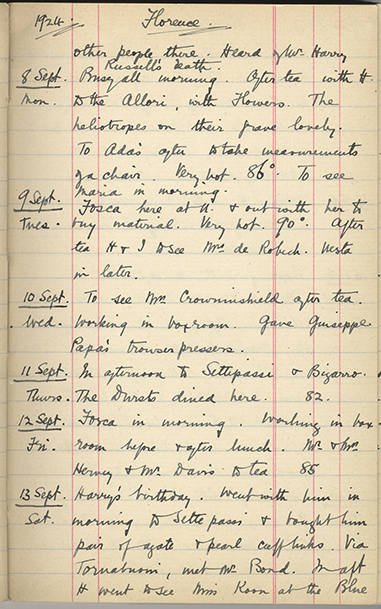 1924. Florence.
other people there. Heard of Mr. Harry
Russell's death.
8 Sept. Busy all morning. After tea with H
Mon. to the Allori, with flowers. The
heliotropes on their grave lovely.
To Ada's after to take measurements
of a chair. Very hot. 86° To see
Maria in morning.
9 Sept. Tosca here at 11. & out with her to
Tues. buy material. Very hot. 90° After
tea H & I to see Mrs de Robeck. Nesta
in later.
10 Sept. To see Mrs. Crowninshield after tea.
Wed. Working in boxroom. Gave Guiseppe
Papa's trouser pressers.
11 Sept. In afternoon to Settepassi & Bizarro.
Thurs. The Dursts dined here. 82.
12 Sept. Tosca in morning. Working in box-
Fri. room before & after lunch. Mr. & Mrs
Hervey & Mr. Davis to tea 85
13 Sept. Harry's birthday. Went with him in
Sat. morning to Settepassi & bought him
pair of agate & pearl cufflinks. Via
Tornabuoni, met Mr. Bond. In aft
H went to see Miss Koon at the Blue